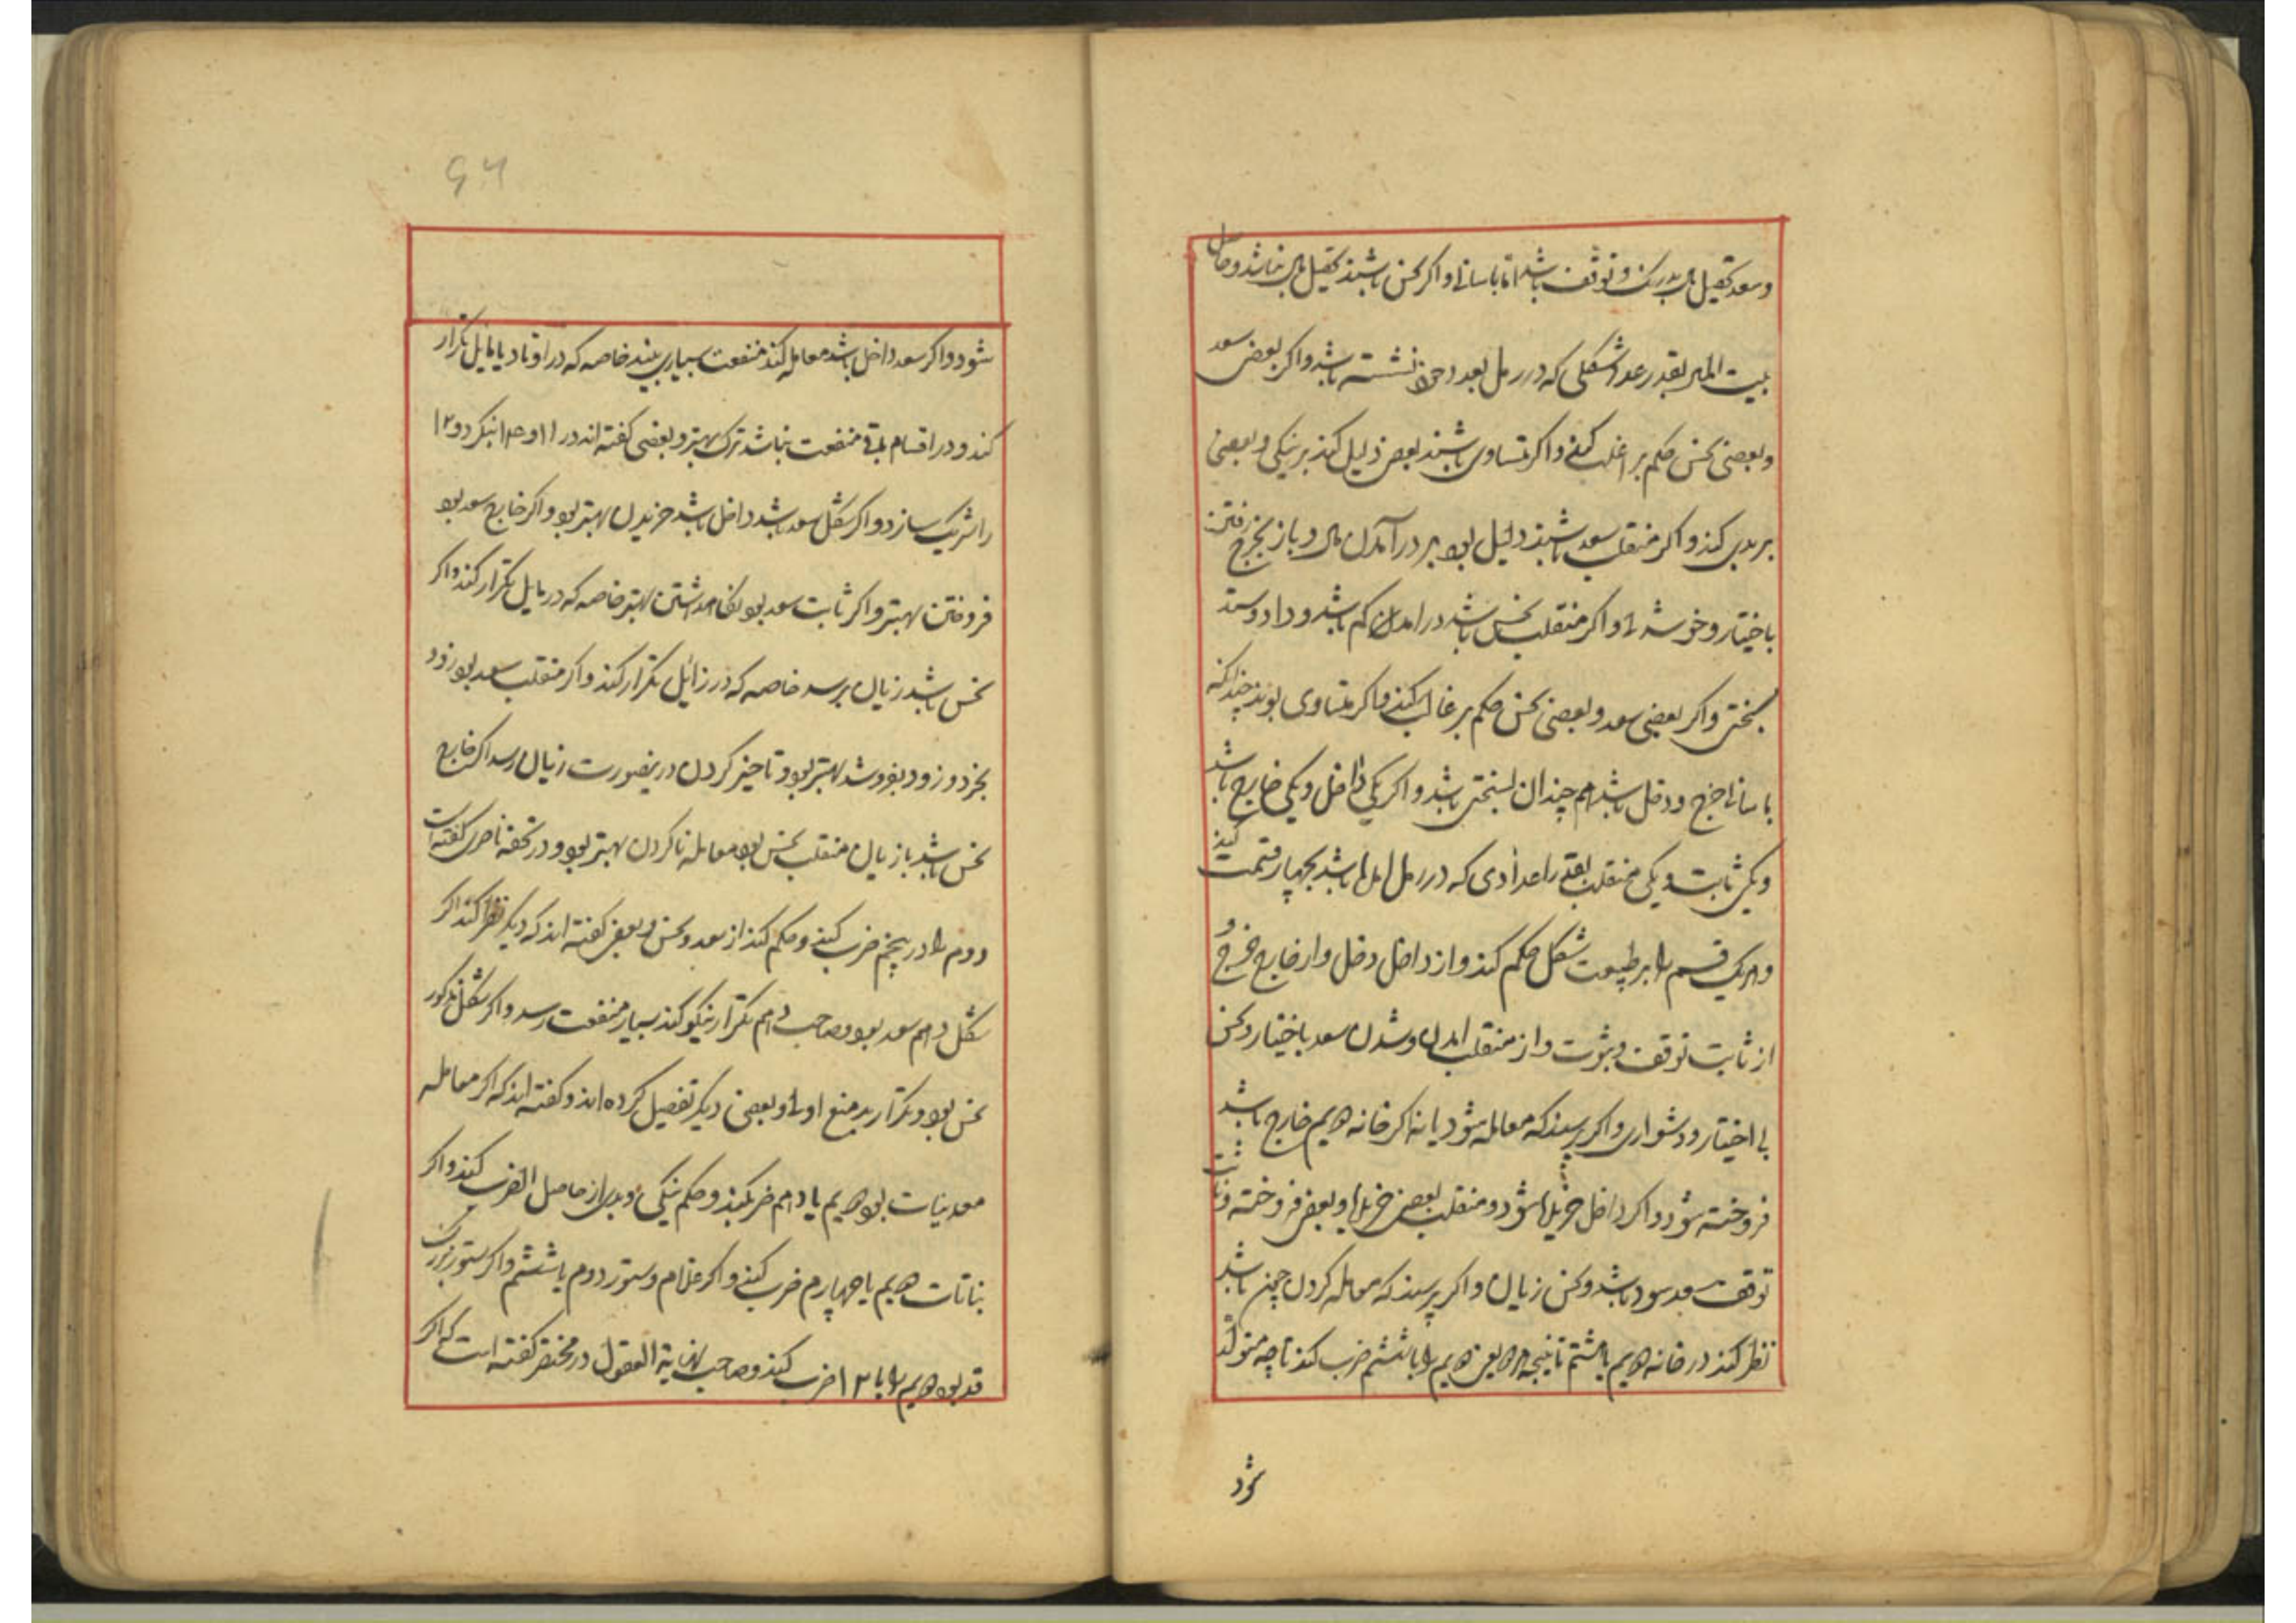 و سعد تحصیل مال بدرنک و توقف باشد اما باسانی و اکر نحس باشند تحصیل مال نباشد و حاصل
بیت المال بقدر عدد شکلی که در رمل بعد نشسته باشد و اکر بعضی سعد
و بعضی نحس حکم بر اغلب کنند و اکر متساوی باشند بعضی دلیل کند بر نیکی و بعضی
بر بدی کند و اکر منقلب سعد باشند دلیل بود بر درآمدن مال و باز بخرج رفتن
باختیار و خوشدلی و اکر منقلب نحس باشد در امدن کم باشد و داد و ستد
بسختی و اکر بعضی سعد و بعضی نحس حکم بر غالب کند و اکر متساوی بوند چندانکه
باسانی خرج و دخل باشد هم چندان بسختی باشد و اکر یکی داخل و یکی خارج باشد
و یکی ثابت و یکی منقلب بقدر اعدادی که در رمل امده باشد بچهار قسمت کنند
و هر یک قسم را بر طبیعت شکل حکم کند و از داخل دخل و از خارج خرج و
از ثابت توقف و ثبوت و از منقلب امدن و شدن سعد باختیار و نحس
بی اختیار و دشواری و اکر پرسند که معامله شود یا نه اکر خانه هیم خارج باشد
فروخته شود و اکر داخل خریده شود و منقلب بعضی خریده و بعضی فروخته و ثابت
توقف سعد سود باشد و نحس زیان و اکر پرسند که معامله کردن چون باشد
نظر کند در خانه هیم با هشتم تا نتیجه بعضی هیم را با ششم ضرب کند تا چه متولد
شود
شود و اکر سعد داخل باشد معامله کند منفعت بسیار بیند خاصه که در اوتاد یا مایل تکرار
کند و در اقسام باقی منفعت نباشد ترک بهتر و بعضی کفته اند در ۱۱ و ۱۳ بنکرد و ۱۲
را شریک سازد و اکر شکل سعد باشد داخل باشد خریدن بهتر بود و اکر خارج سعد بود
فروختن بهتر و اکر ثابت سعد بود نکاهداشتن بهتر خاصه که در مایل تکرار کند و اکر
نحس باشد زیان برسد خاصه که در زائل تکرار کند و اکر منقلب سعد بود زود
بخرد و زود بفروشد بهتر بود و تاخیر کردن درینصورت زیان رسد اکر خارج
نحس باشد یا زیان منقلب نحس بود معامله ناکردن بهتر بود و در تحفه ناصری کفته است
دوم را در پنجم ضرب کنند و حکم کند از سعد و نحس و بعضی کفته اند که دیکر نظر کند اکر
شکل دهم سعد بود و صاحب دهم تکرار نیکو کند بسیار منفعت رسد و اکر شکل مذکور
نحس بود و تکرار بد منع اولی و بعضی دیکر تفصیل کرده اند و کفته اند که اکر معامله
معدنیات بود هیم با دهم ضرب کند و حکم نیکی و بدی از حاصل الضرب کنند و اکر
نباتات هیم با چهارم ضرب کنند و اکر غلام و ستور دوم با ششم و اکر ستور بزرک
قد بود هیم را با ۱۲ ضرب کند و صاحب نهایة العقول در مختصر کفته است که اکر